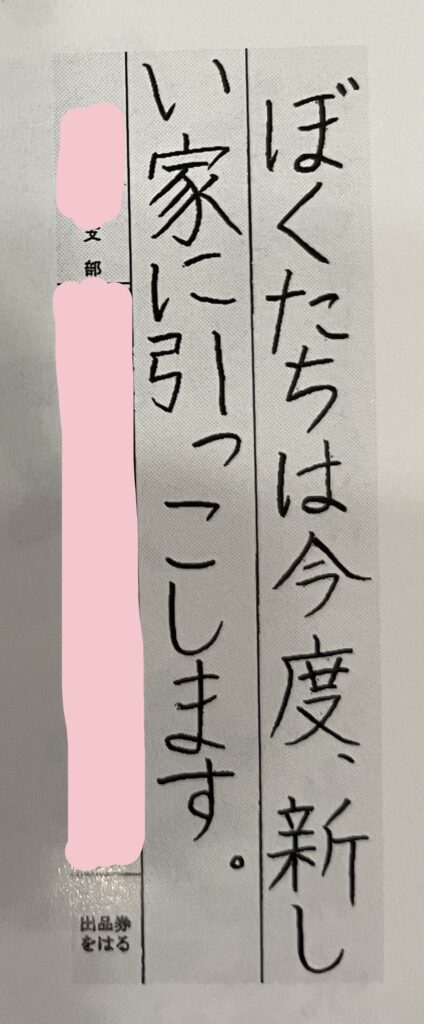 ぼくたちは今度、新し
い家に引っこします。
支部
出品券
をはる